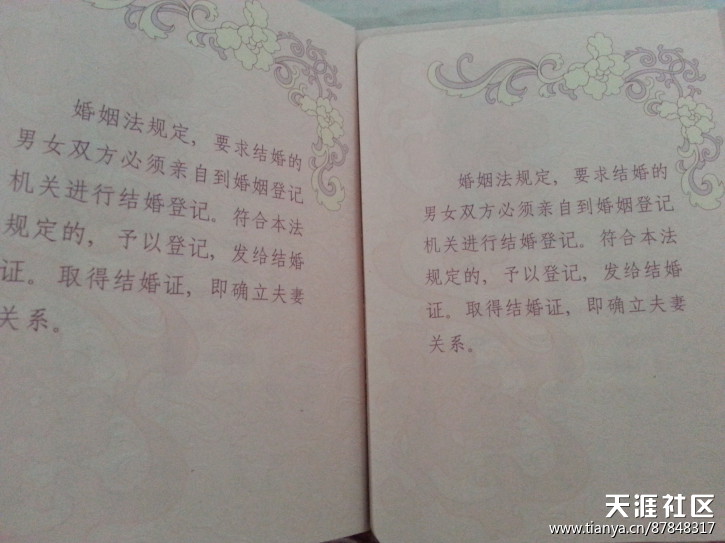 婚姻法规定，要求结婚的
男女双方必须亲自到婚姻登记
机关进行结婚登记。符合本法
规定的，予以登记，发给结婚
证。取得结婚证，即确立夫妻
关系。
婚姻法规定，要求结婚的
男女双方必须亲自到婚姻登记
机关进行结婚登记。符合本法
规定的，予以登记，发给结婚
证。取得结婚证，即确立夫妻
关系。
天涯社区
www.tianya.cn/87848317